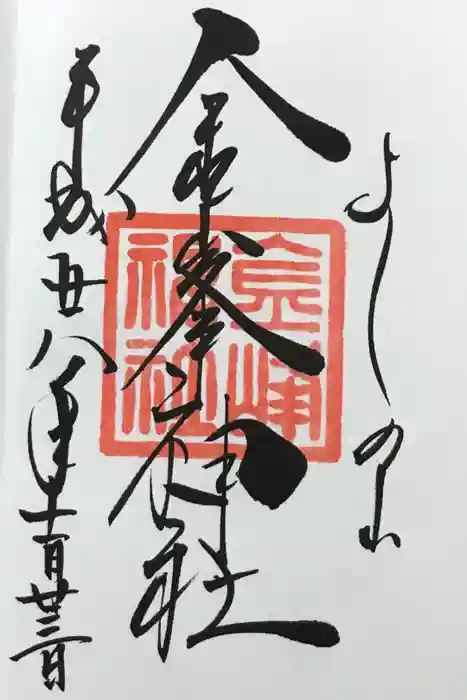 よしの山
金峯神社
金峰神社
平成廿八年十一月廿三日